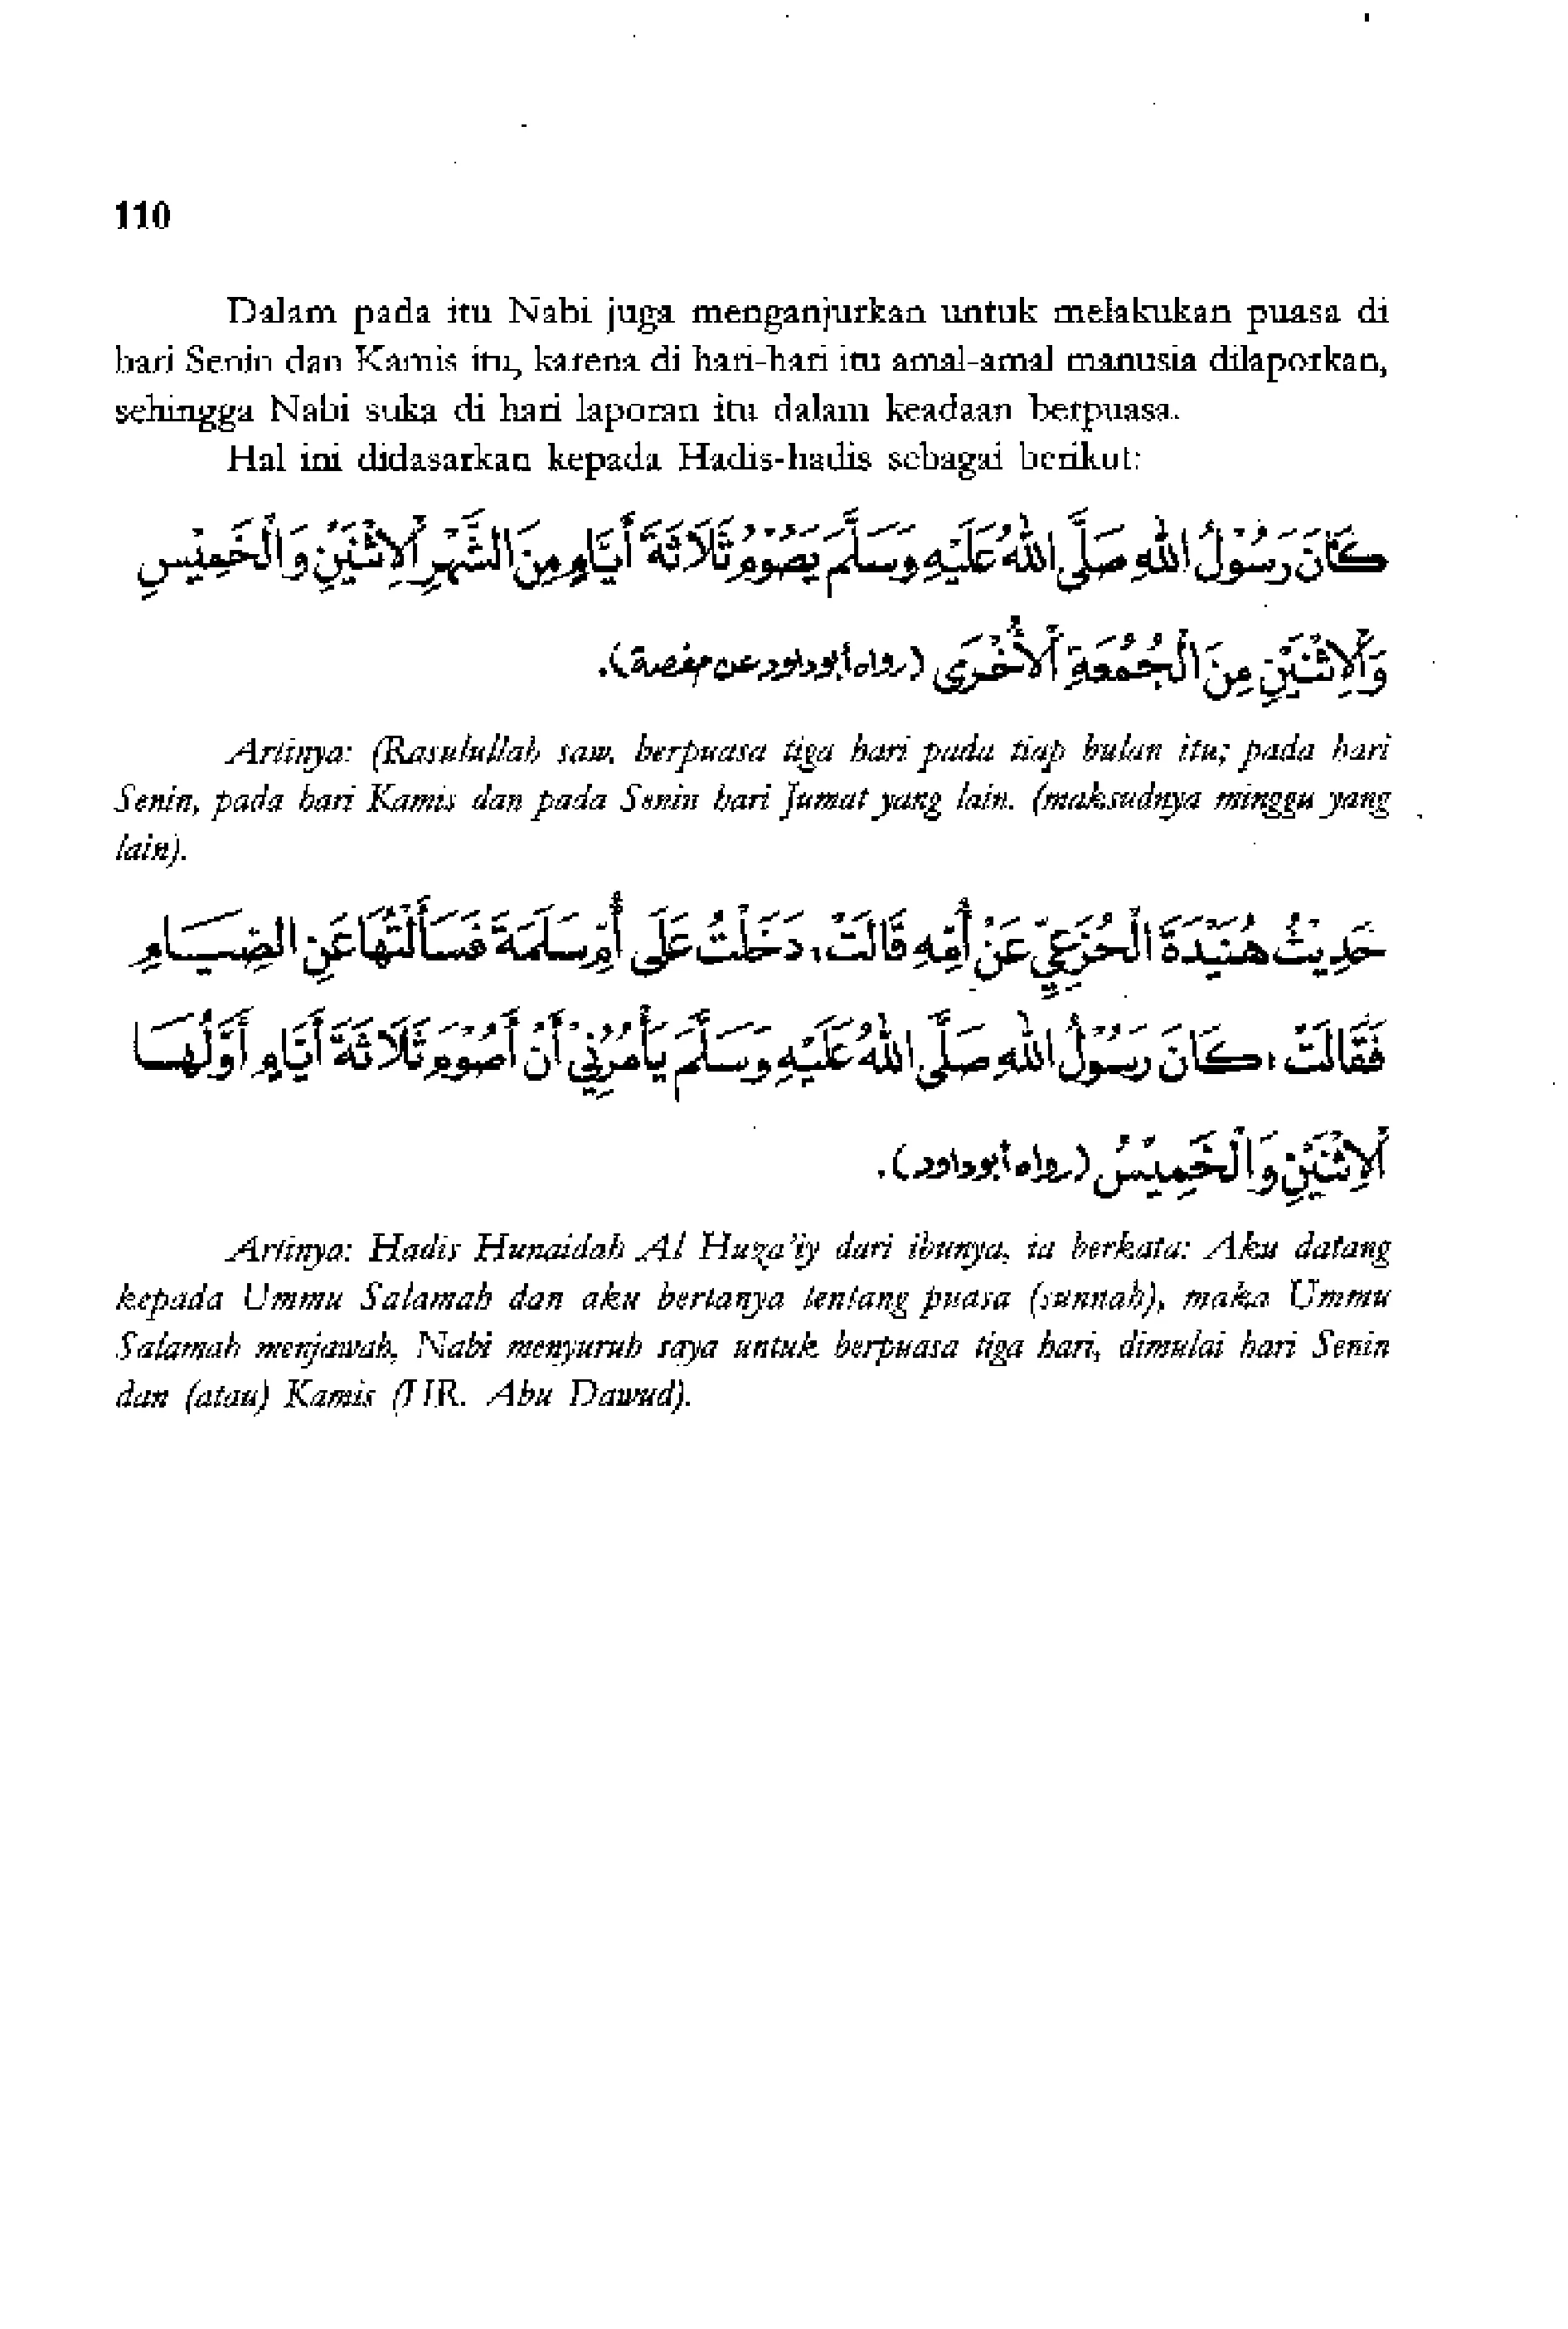 110
Dalam pada itu Nabi juga menganjurkan untuk melakukan puasa di
hari Senin dan Kamis itu, karena di hari-hari itu amal-amal manusia dilaporkan,
sehingga Nabi suka di hari laporan itu dalam keadaan berpuasa.
Hal ini didasarkan kepada Hadis-hadis sebagai berikut:
كَانَ رَسُوْلُ اللهِ صَلَّى اللهُ عَلَيْهِ وَسَلَّمَ يَصُوْمُ ثَلَاثَةَ أَيَّامٍ مِنَ الشَّهْرِ اَلْاِثْنَيْنِ وَالْخَمِيْسِ
وَاَلْاِثْنَيْنِ مِنَ الْجُمُعَةِ اَلْأُخْرَى (رواه أبوداود عن حفصة).
Artinya: (Rasulullah saw. berpuasa tiga hari pada tiap bulan itu; pada hari
Senin, pada hari Kamis dan pada Senin hari Jumat yang lain. (maksudnya minggu yang
lain).
حَدِيْثُ هُنَيْدَةَ الْخُزَعِيِّ عَنْ أُمِّهِ قَالَتْ، دَخَلْتُ عَلَى أُمِّ سَلَمَةَ فَسَأَلْتُهَا عَنِ الصِّيَامِ
فَقَالَتْ، كَانَ رَسُوْلُ اللهِ صَلَّى اللهُ عَلَيْهِ وَسَلَّمَ يَأْمُرُنِيْ أَنْ أَصُوْمَ ثَلَاثَةَ أَيَّامٍ أَوَّلُهَا
اَلْاِثْنَيْنِ وَالْخَمِيْسُ (رواه أبوداود).
Artinya: Hadis Hunaidah Al Huza'iy dari ibunya, ia berkata: Aku datang
kepada Ummu Salamah dan aku bertanya tentang puasa (sunnah), maka Ummu
Salamah menjawab, Nabi menyuruh saya untuk berpuasa tiga hari, dimulai hari Senin
dan (atau) Kamis (HR. Abu Dawud).